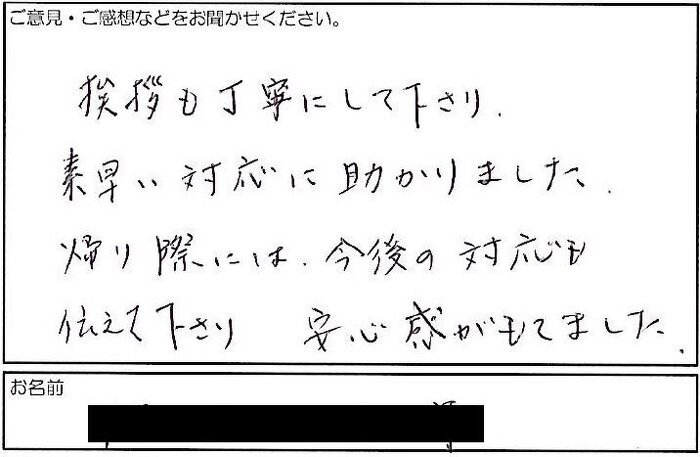 ご意見・ご感想などをお聞かせください。
挨拶も丁寧にして下さり、
素早い対応に助かりました。
帰り際には、今後の対応も
伝えて下さり 安心感がもてました。
お名前